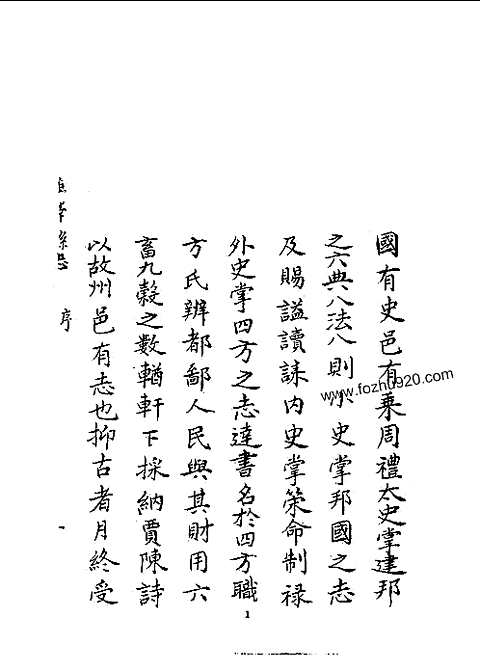 國有史邑有乘周禮太史掌建邦
之六典八法八則小史掌邦國之志
及賜謚讀誄內史掌策命制祿
外史掌四方之志達書名於四方職
方氏辨都鄙人民與其財用六
畜九穀之數輶軒下採納賈陳詩
以故州邑有志也抑古者月終受
序
一
1
www.fozhu920.com